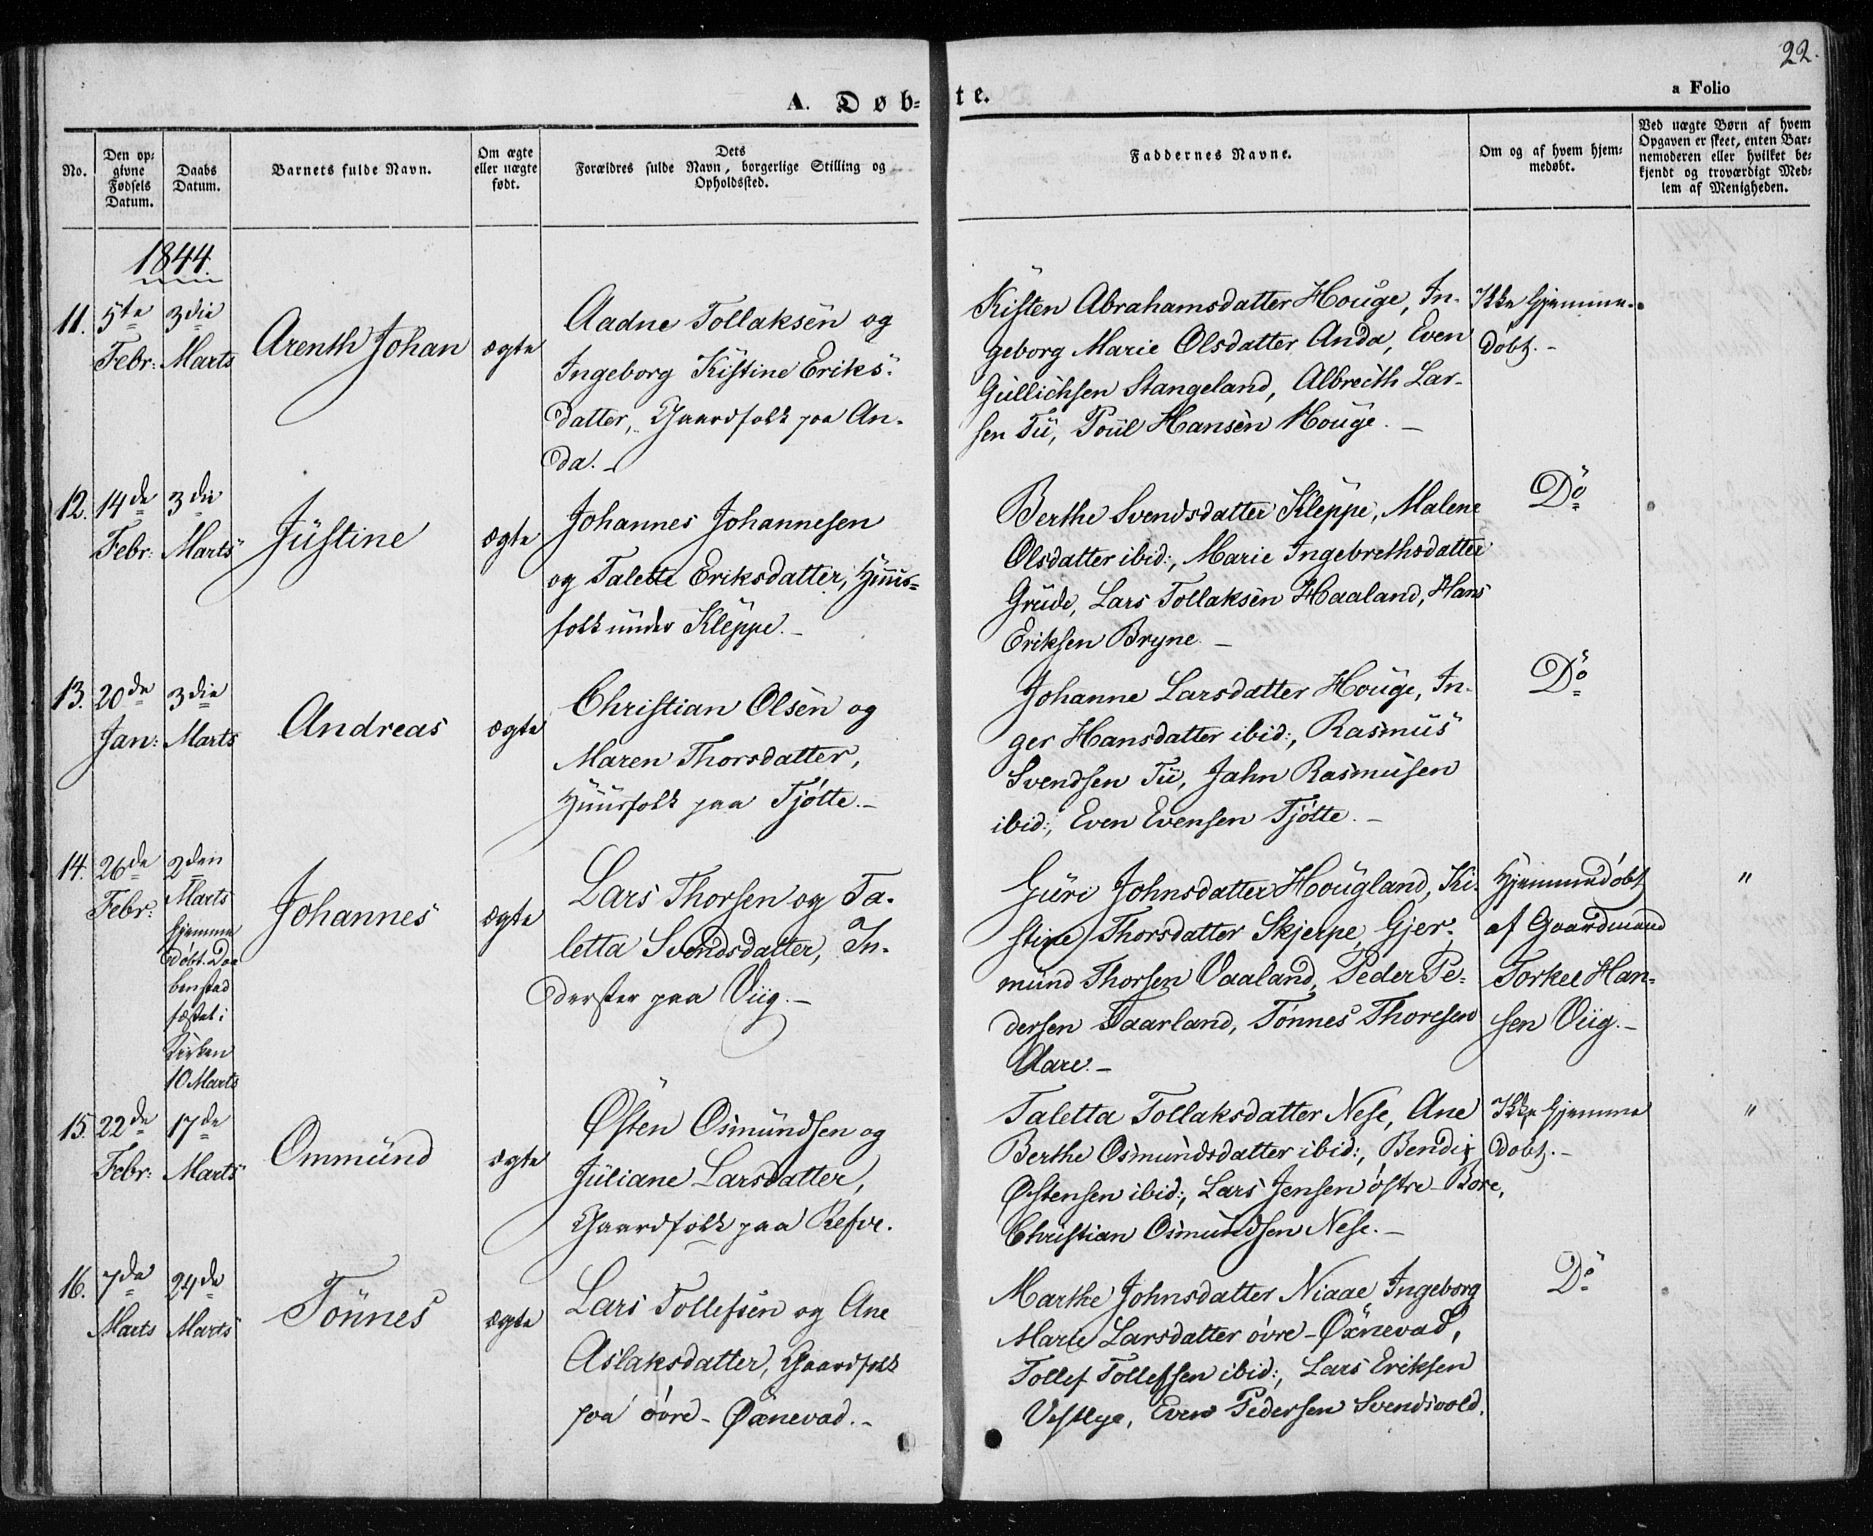 22.
A. Døb-
te.
a Folio
No.
Den op-
givne
Fødsels
Datum.
Daabs
Datum.
Barnets fulde Navn.
Om ægte
eller uægte
født.
Dets
Forældres fulde Navn, borgerlige Stilling og
Opholdssted.
Faddernes Navne.
Om og af hvem hjem-
medøbt.
Ved uægte Børn af hvem
Opgaven er skeet, enten Bar-
nemoderen eller hvilket be-
kjendt og troværdigt Med-
lem af Menigheden.
1844.
11.
5te
Febr:
3die
Marts
Arenth Johan
ægte
Aadne Tollaksen og
Ingeborg Kistine Eriks-
datter, Gaardfolk paa An-
da.-
Kisten Abrahamsdatter Houge, In-
geborg Marie Olsdatter Anda, Even
Gullichsen Stangeland, Albrecth Lar-
sen Tu, Poul Hansen Houge.-
Ikke hjemme-
døbt.-
12.
14de
Febr:
3die
Marts
Justine
ægte
Johannes Johannesen
og Talette Eriksdatter, Huus-
folk under Kleppe.-
Berthe Svendsdatter Kleppe, Malene
Olsdatter ibid:, Marie Ingebrethsdatter
Grude, Lars Tollaksen Haaland, Hans
Eriksen Bryne.-
Do
13.
20de
Jan:
3die
Marts
Andreas
ægte
Christian Olsen og
Maren Thorsdatter,
Huusfolk paa Tjøtte.-
Johanne Larsdatter Houge, In-
ger Hansdatter ibid:, Rasmus
Svendsen Tu, Jahn Rasmusen
ibid:, Even Evensen Tjøtte.-
Do
14.
26de
Febr:
2den
Marts
hjemme
døbt. Daa
ben stad
fæstet i
Kirken
10 Marts
Johannes
ægte
Lars Thorsen og Ta-
letta Svendsdatter, In-
derster paa Viig.-
Guri Johnsdatter Hougland, Ki-
stine Thorsdatter Skjerpe, Gjer-
mund Thorsen Vaaland, Peder Pe-
dersen Taarland, Tønnes Thoresen
Aare.-
Hjemmedøbt
af Gaardmand
Torkel Han-
sen Viig.-
"
15.
22de
Febr:
17de
Marts
Ommund
ægte
Østen Osmundsen og
Juliane Larsdatter,
Gaardfolk paa Refve.
Taletta Tollaksdatter Nese, Ane
Berthe Osmundsdatter ibid:, Bendix
Østensen ibid:, Lars Jensen østre-Bore,
Christian Osmundsen Nese.-
Ikke hjemme
døbt.-
"
16.
7da
Marts
24de
Marts
Tønnes
ægte
Lars Tollefsen og Ane
Aslaksdatter, Gaardfolk
paa øvre-Øxnevad.-
Marthe Johnsdatter Niaae Ingeborg
Marie Larsdatter øvre-Øxnevad,
Tollef Tollefsen ibid:, Lars Eriksen
Vestlye, Even Pedersen Svendsvold.
Do